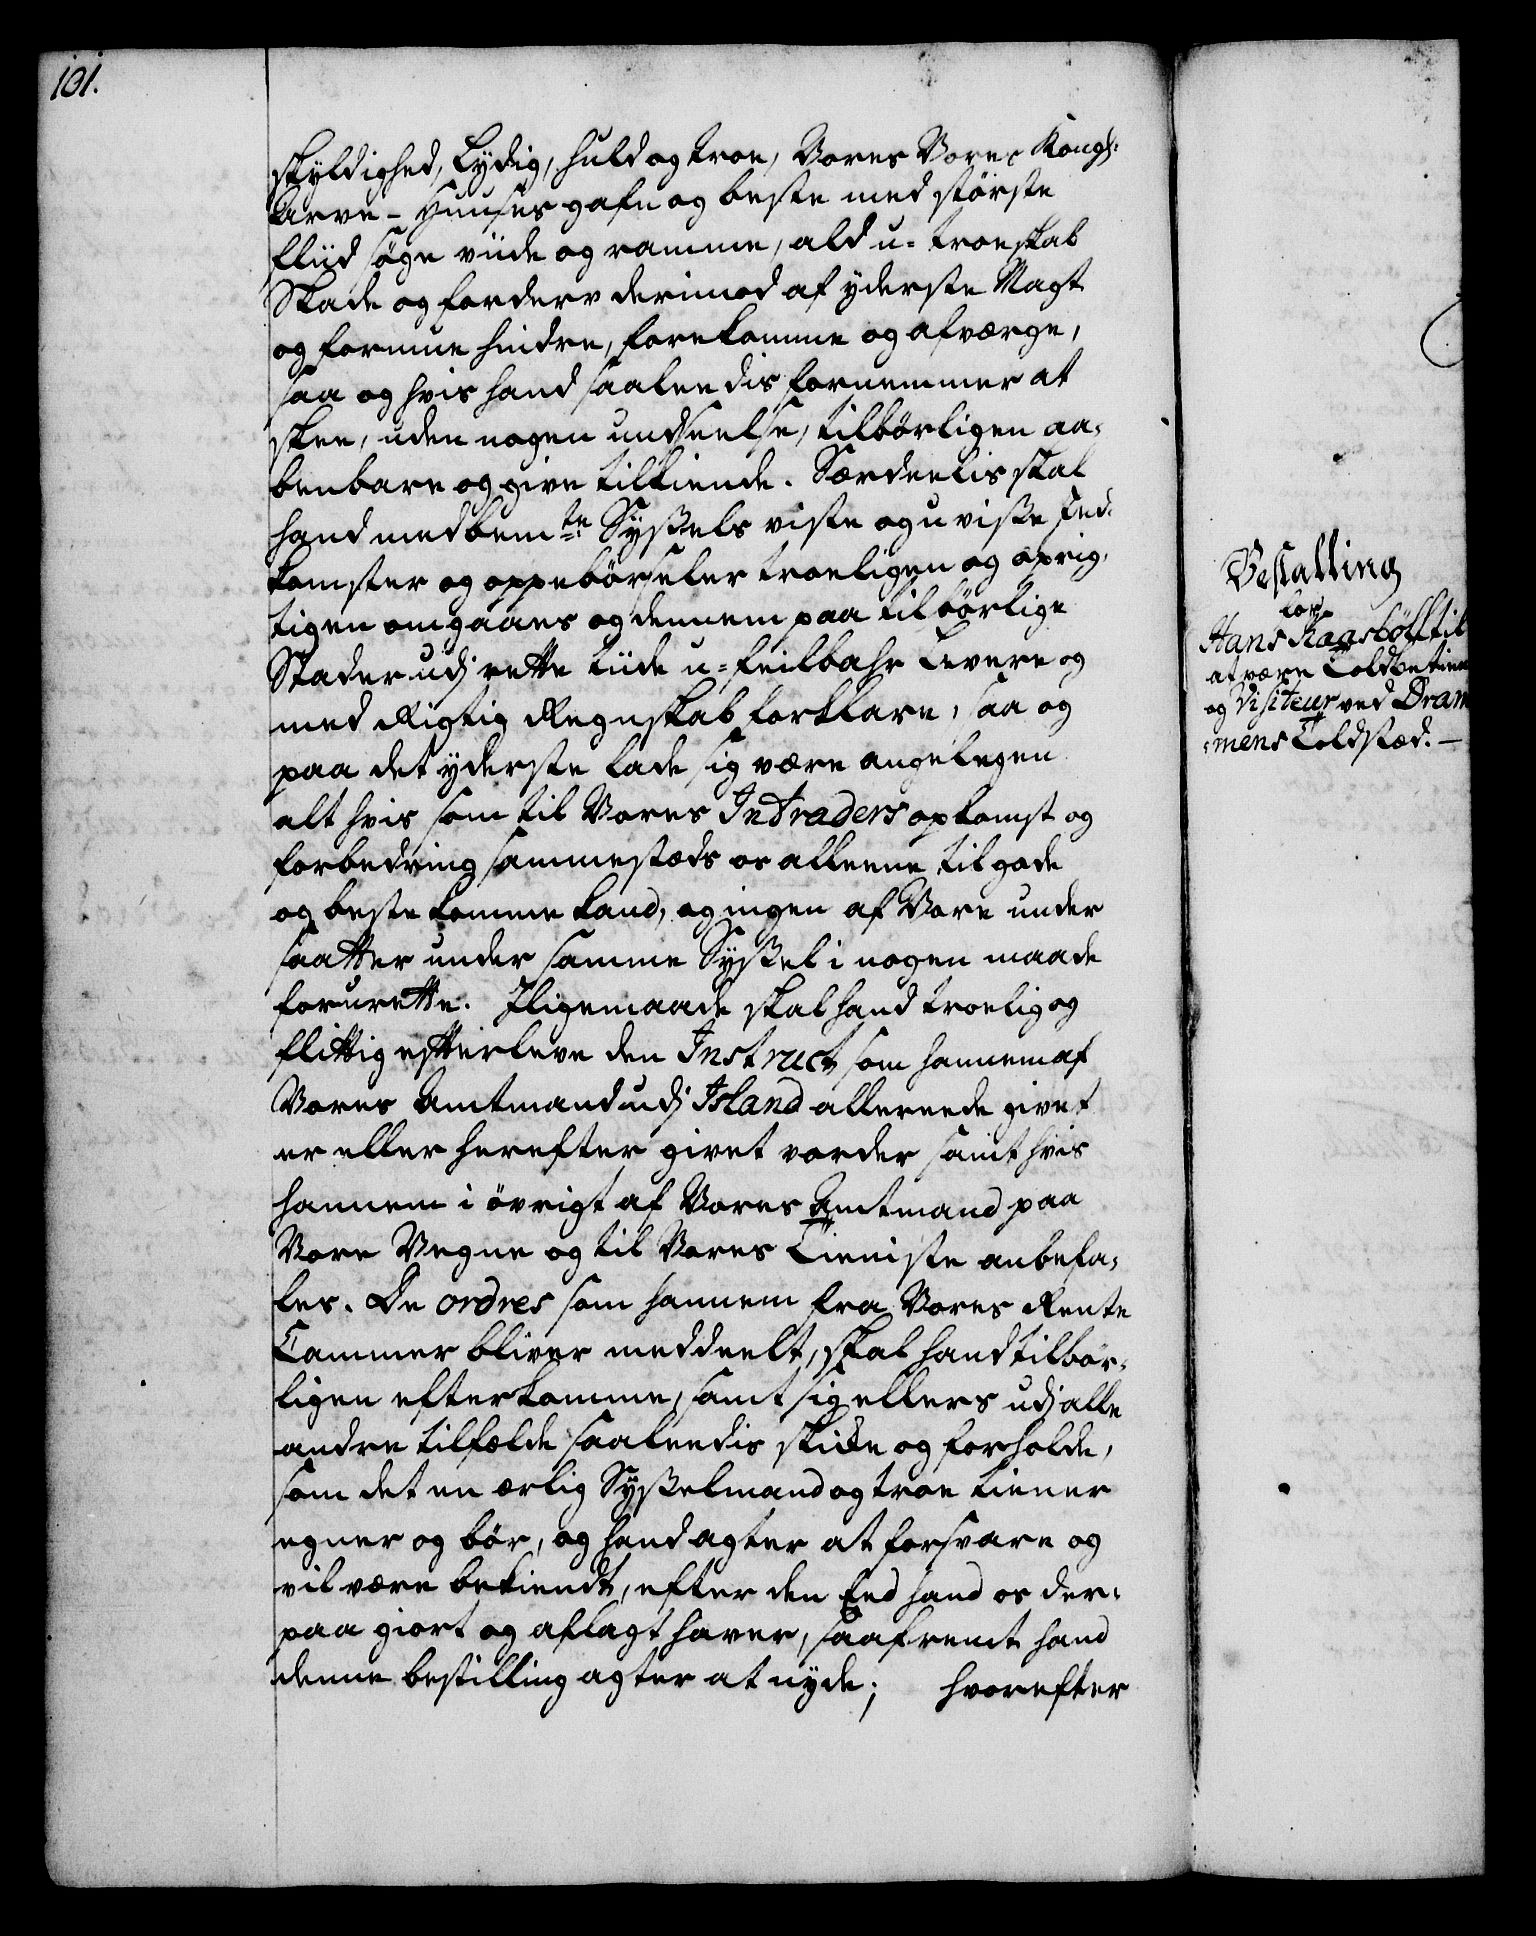 101.
skyldighed, Lydig, huld og troe, Vores Vores Kongl:
Arve-Huuses gafn og beste med største
fliid søge viide og ramme, ald u-troeskab
Skade og forderv derimod af yderste Magt
og formue hindre, forekomme og afværge,
saa og hvis hand saaleedis fornemmer at
skee, uden nogen undseelse, tilbørligen aa-
benbare og give tilkiende. Særdeelis skal
hand med bem:te Syssels viste og uvisse Ind-
komster og oppebørseler troeligen og oprig-
tigen omgaaes og dennem paa tilbørlige
Stader udj rette tiide u-feilbahr Levere og
med Rigtig Regnskab forklare, saa og
paa det yderste lade sig være angelegen
alt hvis som til Vores Intraders opkomst og
forbedring sammestæds os alleene til gode
og beste komme kand, og ingen af Vore under
saatter under samme Syssel i nogen maade
forurette. Iligemaade skal hand troelig og
flittig efterleve den Instruct som hannem af
Vores Amtmand udj Island allereede givet
er eller herefter givet vorder samt hvis
hannem i øvrigt af Vores Amtmand paa
Vore Vegne og til Vores Tieniste anbefa-
les. De ordres som hannem fra Vores Rente
Cammer bliver meddeelt, skal hand tilbør-
ligen efterkomme, samt sig ellers udj alle
andre tilfælde saaleedis skicke og forholde,
som det en ærlig Sysselmand og troe tiener
egner og bør, og hand agter at forsvare og
vil være bekiendt, efter den Eed hand os der-
paa giort og aflagt haver, saafremt hand
denne bestilling agter at nyde; hvorefter
Bestalling
for
Hans Kaasbøll til
at være Toldbetien
og Visiteur ved Dram
-mens Toldstæd.